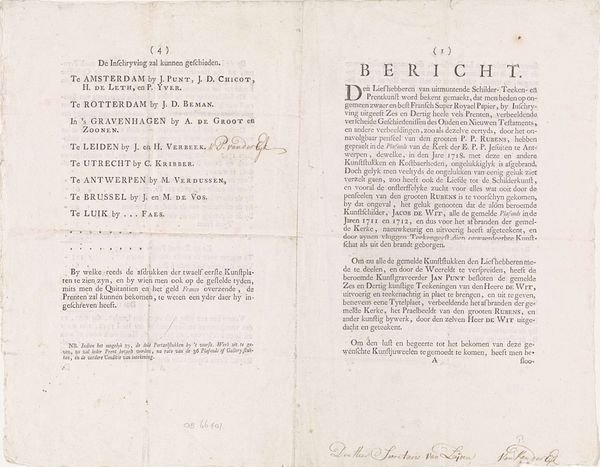 ( 4 )
De Inschryving zal kunnen geschieden.
Te AMSTERDAM by J. PUNT, J. D. CHICOT,
H. DE LETH, en P. YVER.
Te ROTTERDAM by J. D. BEMAN.
In 's GRAVENHAGEN by A. DE GROOT en
ZOONEN.
Te LEIDEN by J. en H. VERBEEK.
Te UTRECHT by C. KRIBBER.
Te ANTWERPEN by M. VERDUSSEN,
Te BRUSSEL by J. en M. DE VOS.
Te LUIK by . . . FAES.
By welke reeds de afdrukken der twaelf eerste Kunstpla-
ten te zien zyn, en by wien men ook op de gestelde tyden,
mits men de Quitantien en het geld Franco overzende, de
Prenten zal kunnen bekomen, te weten een yder daer hy in-
geschreven heeft.
NB. Indien het mogelyk zy, de drie Portaelstukken by 't voorsz. Werk uit te ge-
ven, zo zal ieder Prent betaelt worden, na rato van de 36 Plafonds of Gallery stuk-
ken, en de verdere Conditie van intekening.
( 1 )
BERICHT.
Den Liefhebberen van uitmuntende Schilder- Teeken- en
Prentkunst word bekent gemaekt, dat men heden op on-
gemeen zwaer en best Fransch Super Royael Papier, by Inschry-
ving uitgeeft Zes en Dertig heele vels Prenten, verbeeldende
verscheide Geschiedenissen des Ouden en Nieuwen Testaments,
en andere verbeeldingen, zoo als dezelve eertyds, door het on-
navolgbaer penseel van den grooten P. P. RUBENS, hebben
gepraelt in de Plafonds van de Kerk der E. P. P. Jesuiten te Ant-
werpen, dewelke, in den Jare 1718. met deze en andere
Kunststukken en Kostbaerheden, ongelukkiglyk is afgebrand.
Doch gelyk men veeltyds de ongelukken van eenig geluk ziet
verzelt gaen, zoo heeft ook de Liefde tot de Schilderkunst,
en vooral de onsterffelyke zucht voor alles wat ooit door de
penseelen van den grooten RUBENS is te voorschyn gekomen,
by dat ongeval, het geluk genooten dat de alöm beroemde
Kunstschilder, JACOB DE WIT, alle de gemelde Plafonds in de
Jaren 1711 en 1712, en dus voor het afbranden der gemel-
de Kerke, nauwkeurig en uitvoerig heeft afgeteekent, en
door zynen vluggen Teekengeest dien eerwaerdigen Kunst-
schat als uit den brandt geborgen.
Om nu alle de gemelde Kunststukken den Liefhebberen mede
te deelen, en door de Weereldt te verspreiden, heeft de
beroemde Kunstgraveerder JAN PUNT beslooten de gemelde
Zes en Dertig kunstige Teekeningen van den Heere DE WIT,
uitvoerig en teekenachtig in plaet te brengen, en uit te geven,
benevens eene Tytelplaet, verbeeldende het afbranden der ge-
melde Kerke, het Praelbeeldt van den grooten RUBENS, en
ander kunstig bywerk, door den zelven Heer DE WIT uitge-
dacht en geteekent.
Om den lust en begeerte tot het bekomen van deze ge-
wenschte Kunstjuweelen te gemoedt te komen, heeft men be-
A
sloo-